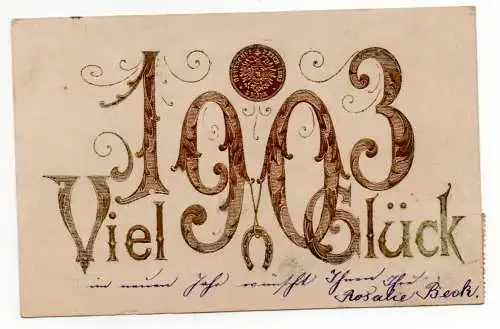 1903
Viel Glück
im neuen Jahr wünscht Ihnen Ihre
Rosalie Beck.